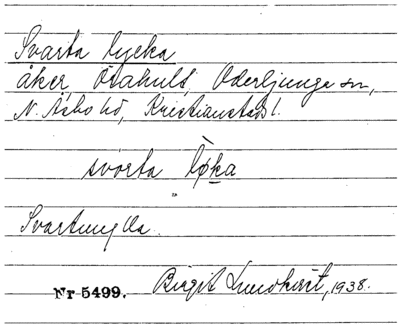 Svarta lycka
åker, Ötahult, Oderljunga sn,
N. Åsbo hd, Kristianstads l.
svǫrta lø̀ka
Nr 5499. Birgit Lundkvist, 1938.